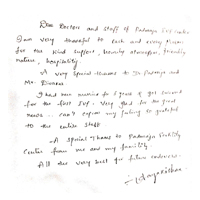 Dear Doctors and staff of Padmaja IVF centre
I am very thankful to each and every Person
for the kind support, homely atmosphere, friendly
nature, hospitality.
A very Special thanks to Dr. Padmaja and
Mr.
I had no in 6 years & got succeed
for the first IVF. Very glad for the great
news.. can't express my feeling so grateful
to the entire staff
A special thanks to Padmaja Fertility
Centre from me and my family.
All the very best for future endeavours.